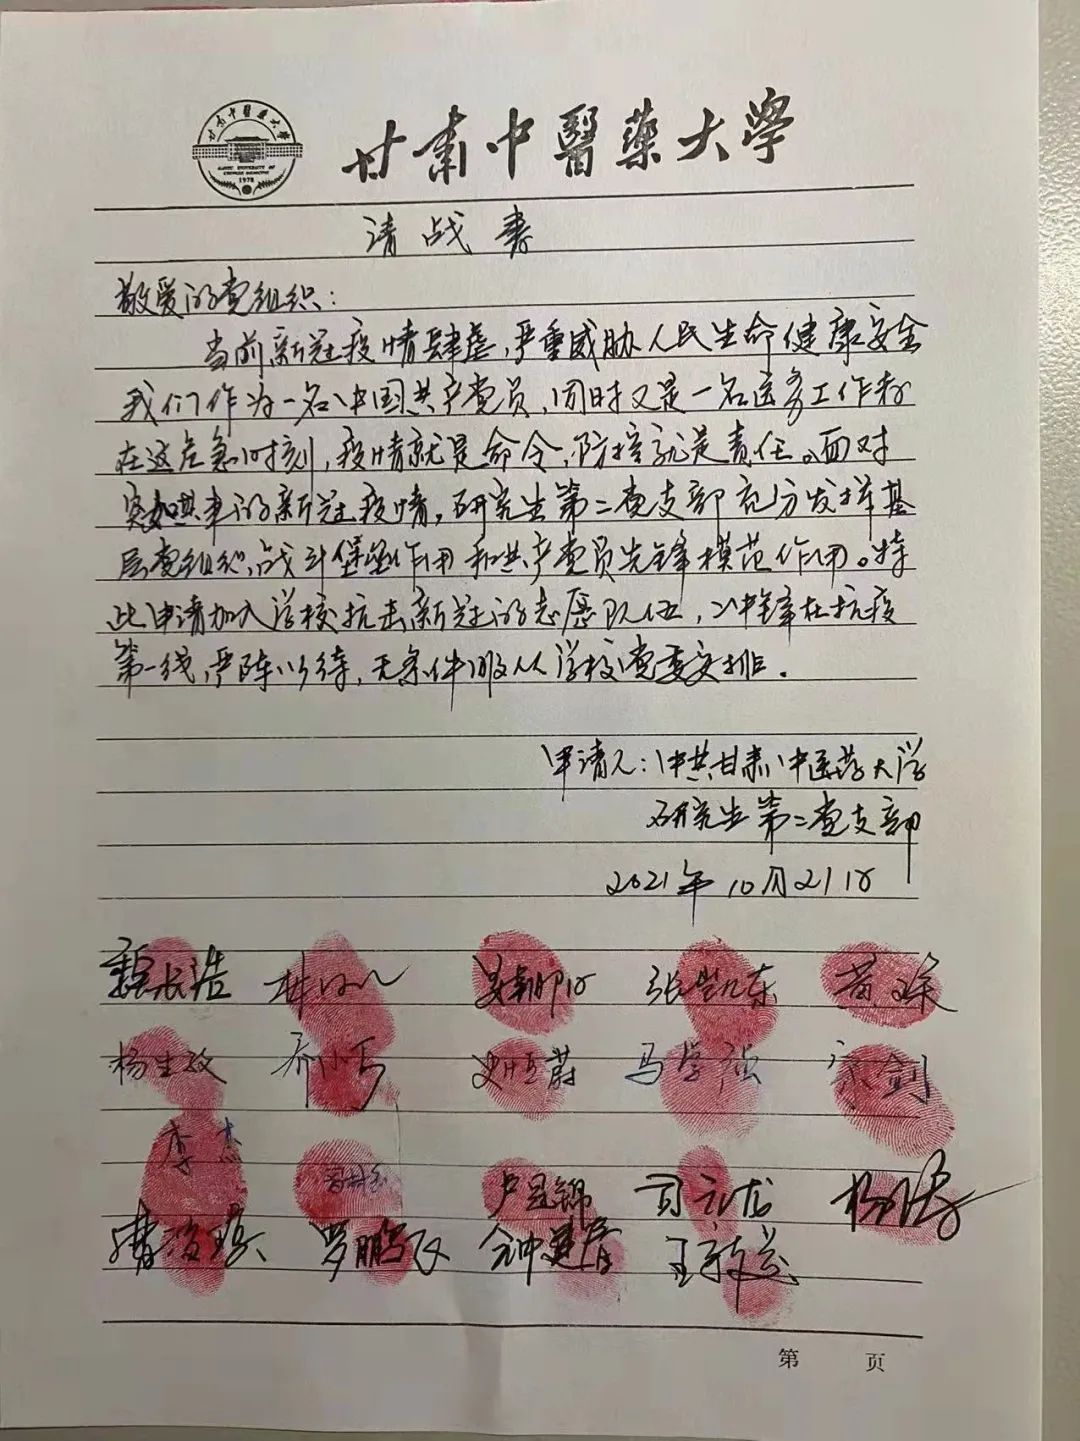 甘肃中醫藥大學
甘肃中醫藥大學
GANSU UNIVERSITY OF
CHINESE MEDICINE
1978
请战书
敬爱的党组织：
当前新冠疫情肆虐，严重威胁人民生命健康安全
我们作为一名中国共产党员，同时又是一名医务工作者
在这危急时刻，疫情就是命令，防控就是责任。面对
突如其来的新冠疫情，研究生第二党支部充分发挥基
层党组织战斗堡垒作用和共产党员先锋模范作用。特
此申请加入学校抗击新冠的志愿队伍，冲锋在抗疫
第一线，严阵以待，无条件服从学校党委安排.
申请人：中共甘肃中医药大学
研究生第二党支部
2021年10月21日
魏长浩 张凯东
杨生 乔小 史恒蔚 马学强 剑
李杰
卢昱锦 杨涛
罗鹏飞 钟建 王敏
第 页